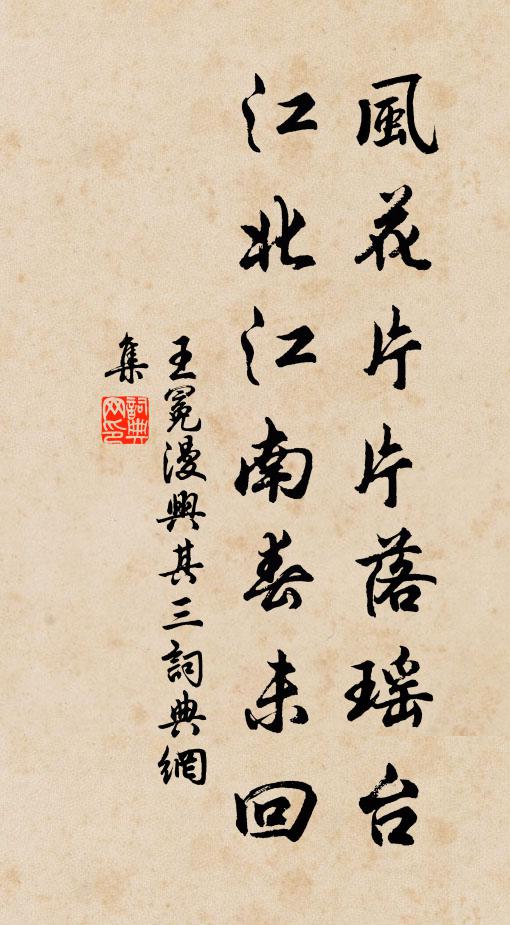 風花片片落瑶台
江北江南春未回
王冕漫興其三詞典網
集
詞典网印